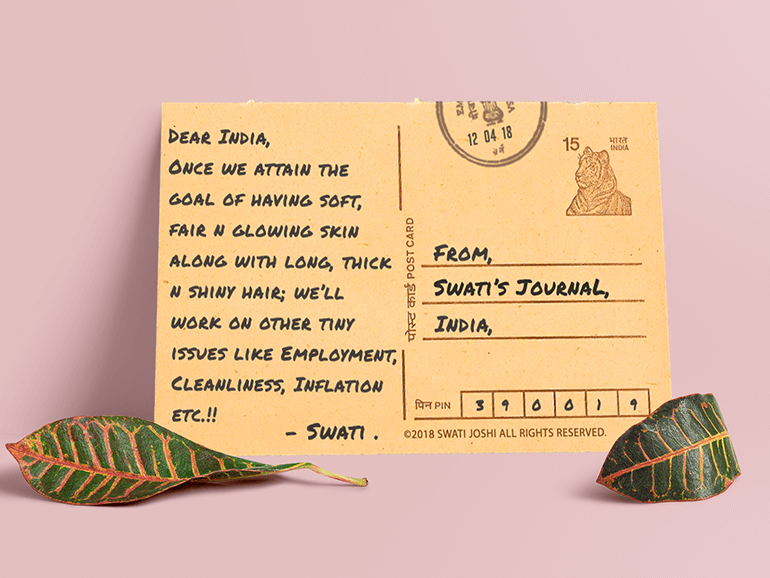 Dear India,
Once we attain the
goal of having soft,
fair n glowing skin
along with long, thick
n shiny hair; we'll
work on other tiny
issues like Employment,
Cleanliness, Inflation
etc.!!
- Swati .
12 04 18
15 भारत
INDIA
पोस्ट कार्ड POST CARD
From,
Swati's Journal,
India,
पिन PIN 3 9 0 0 1 9
©2018 SWATI JOSHI ALL RIGHTS RESERVED.